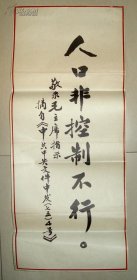 人口非控制不行。
敬录毛主席指示
摘自《中共中央文件中发(七五)4号》